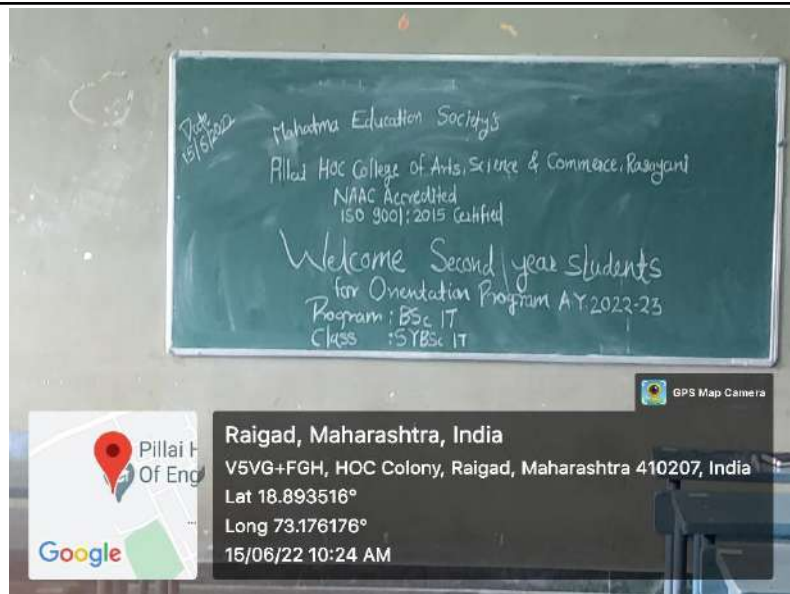 Date
15/6/2022
Mahatma Education Society's
Pillai HOC College of Arts, Science & Commerce, Rasayani
NAAC Accredited
ISO 9001:2015 Certified
Welcome Second year students
for Orientation Program A.Y.2022-23
Program : BSc IT
Class : SYBSc IT
GPS Map Camera
Pillai H
Of Eng
Google
Raigad, Maharashtra, India
V5VG+FGH, HOC Colony, Raigad, Maharashtra 410207, India
Lat 18.893516°
Long 73.176176°
15/06/22 10:24 AM